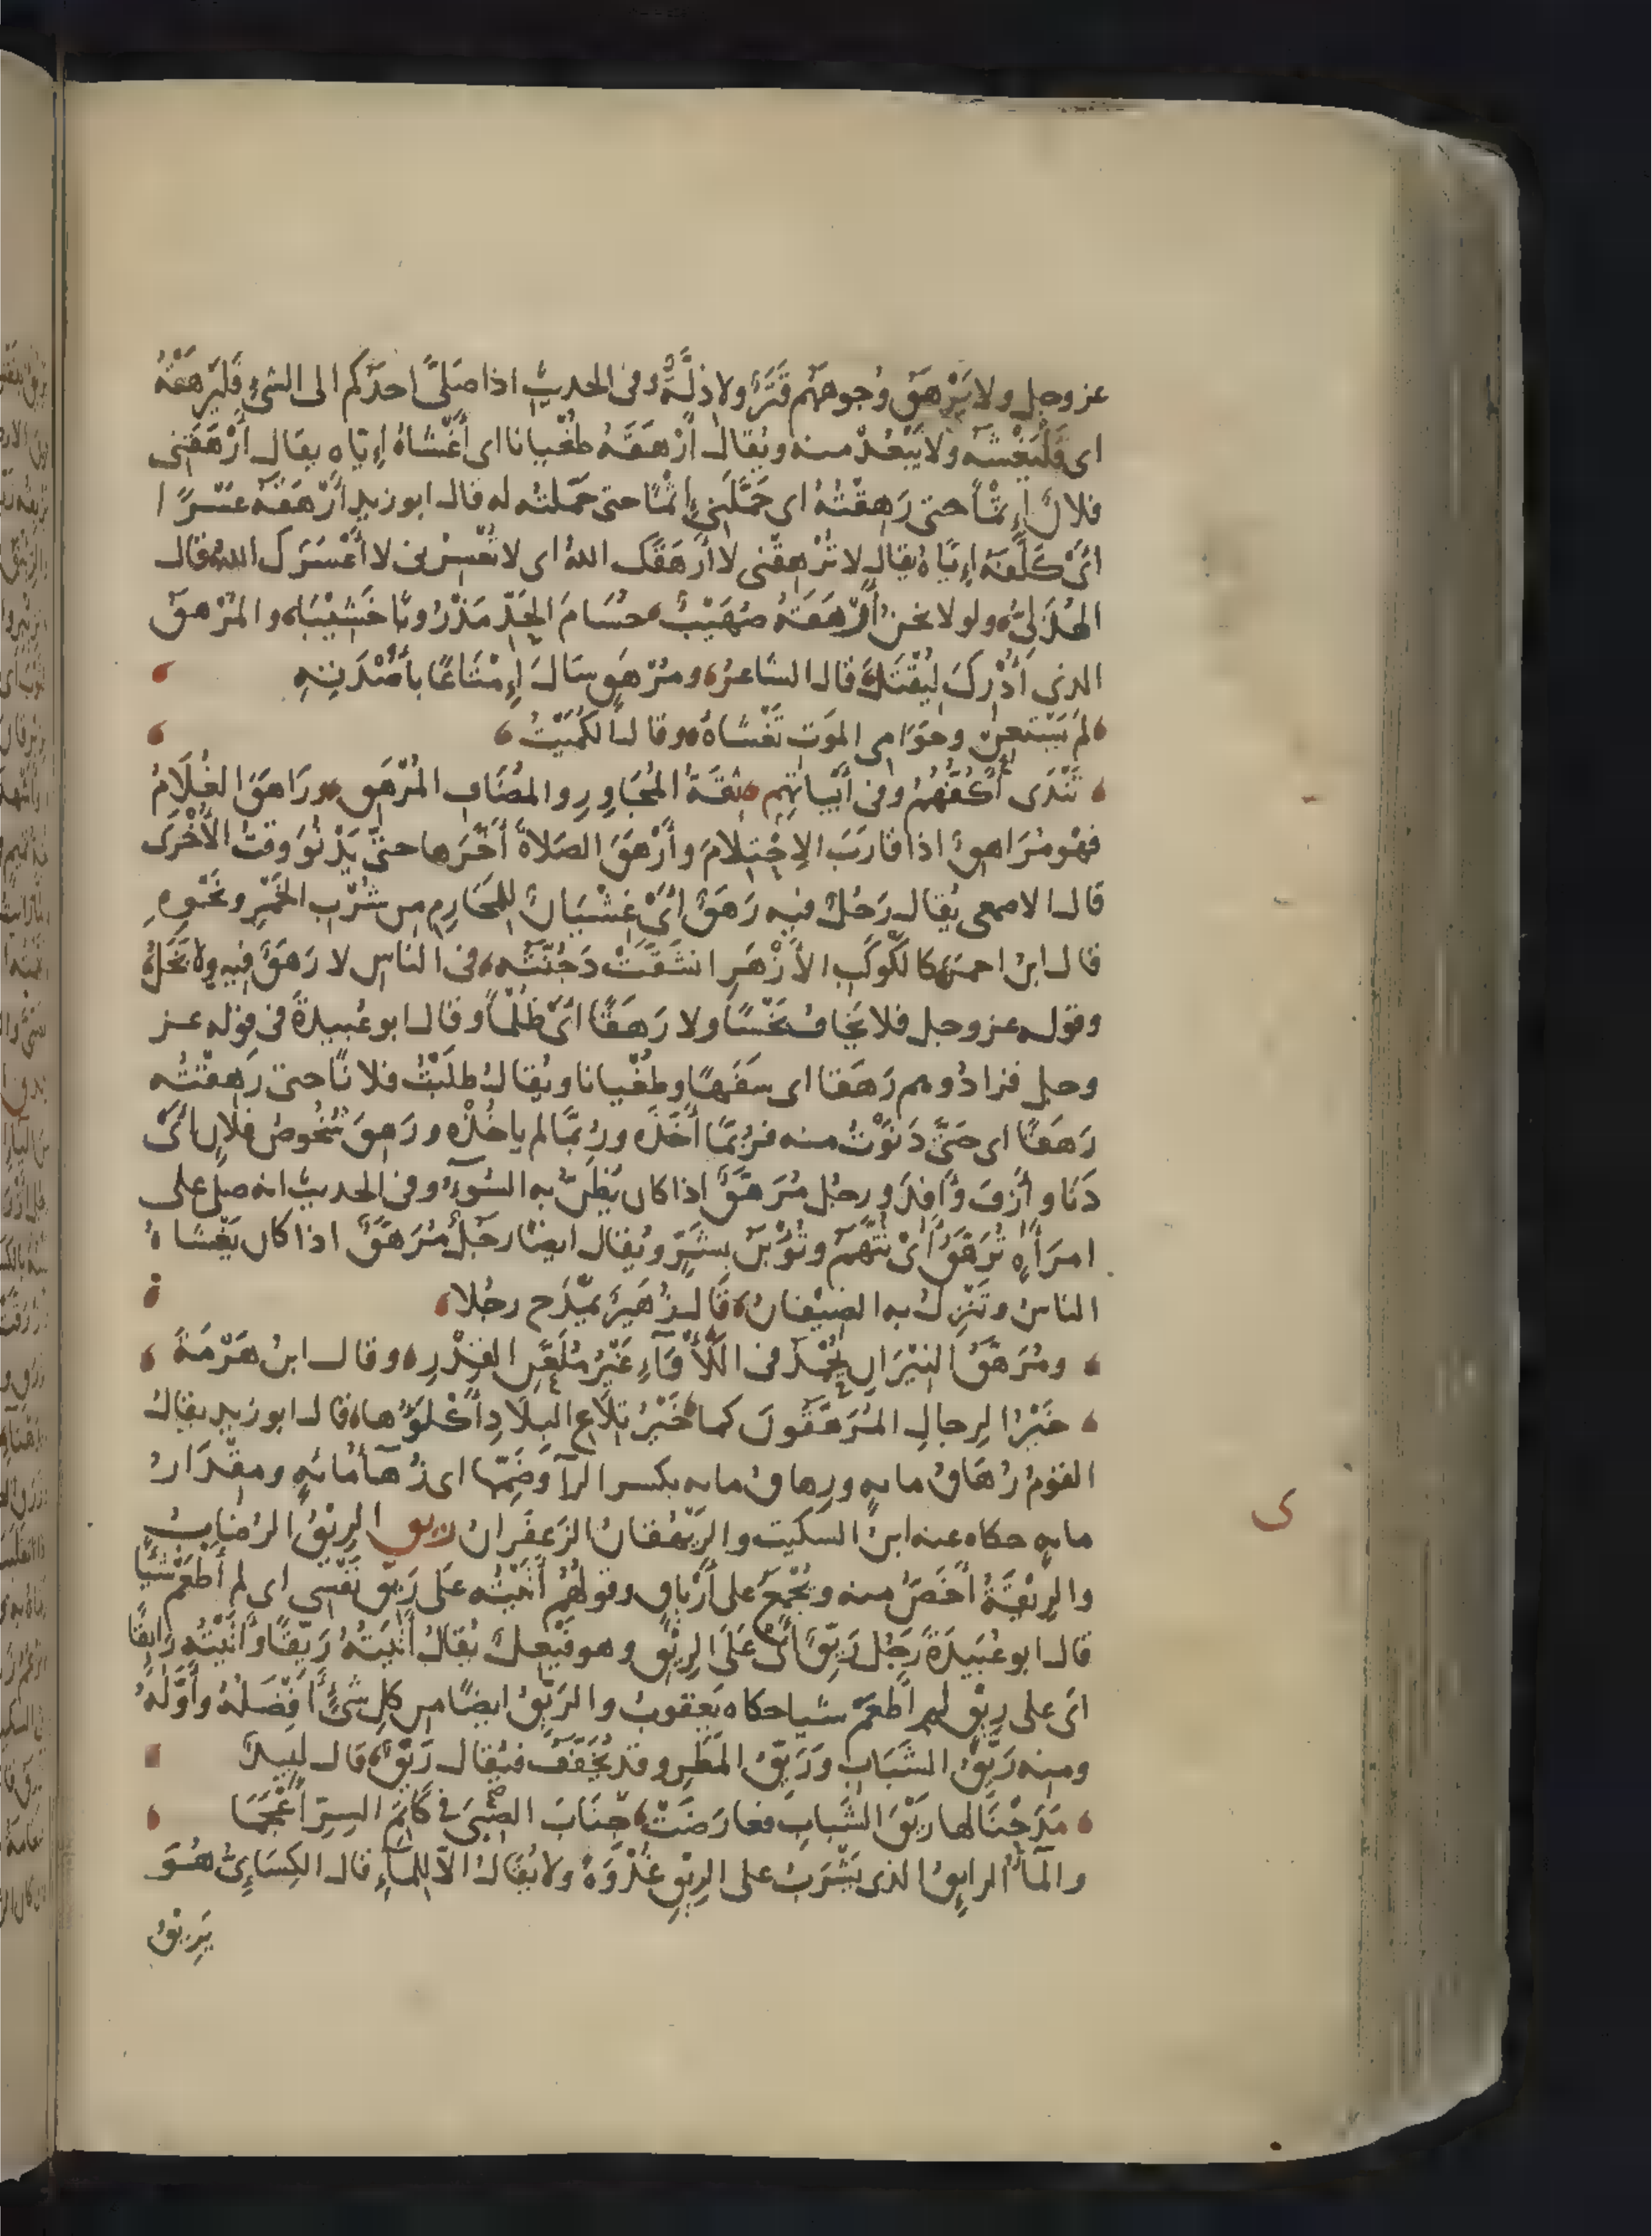 عز وجل ولا يَرْهَق وُجوهَهُم قَتَرٌ ولا ذِلَّةٌ وفى الحديث اذا صَلَّى احدُكم الى الشئ فَليَرهَقْهُ
اى فَلْيَغْشَه ولا يَبْعُدْ منه ويُقال أَرْهَقَهُ طُغْيانا اى أَغْشاهُ إيّاه يقال أَرْهَقَنى
فلانٌ إِثْمًا حتى رَهِقْتُهُ اى حَمَّلَنى إِثْمًا حتى حَمَلتُه له قال ابو زيد أَرْهَقَهُ عُسْرًا
اى كَلَّفَهُ إيّاهُ يقال لا تُرْهِقْنى لا أَرْهَقَك اللهُ اى لا تُعْسِرْنى لا أَعْسَرَك اللهُ وقال
الهُذَلىُّ ولولا نحن أَرْهَقَهُ صُهَيْبٌ حُسَامَ الحَدِّ مَذْرُوبًا خَشِيْبَا والمُرْهَق
الذى أُدْرِكَ لِيُقْتَلَ قال الشاعرُ ومُرْهَقٍ سَالَ إِمْتَاعًا بأُصْدَتِهِ
لَمْ يَسْتَعِنْ وحَوَامى المَوت تَغْشَاهُ وقال الكُمَيْتُ
تَنْدَى أَكُفُّهُمُ وفى أَبْياتِهِم ثِقَةُ المُجَاوِرِ والمُضَافِ المُرْهَقِ ورَاهَقَ الغُلَامُ
فهو مُرَاهِقٌ اذا قارَبَ الاِحْتِلامَ وأَرْهَقَ الصَلاةَ أَخَّرَها حتى يَدْنُوَ وقتُ الأُخْرَى
قال الاصمعى يُقال رَجُلٌ فيه رَهَقٌ اى غَشْيَانٌ لِلمَحَارِم من شُرْبِ الخَمْرِ ونَحْوِهِ
قال ابن احمر كالكَوكَبِ الأَزْهَرِ انشَقَّتْ دَجُنَّتُه فى الناس لا رَهَقٌ فيه ولا بَخَلُ
وقوله عز وجل فلا يَخَافُ بَخْسًا ولا رَهَقًا اى ظُلْمًا وقال ابو عُبيدةَ فى قوله عز
وجل فزادُوهم رَهَقا اى سَفَهًا وطُغْيانا ويُقال طَلَبْتُ فلانًا حتى رَهِقْتُه
رَهَقًا اى حتى دَنَوْتُ منه فربَّمَا أَخَذَه ورُبَّمَا لم ياخُذْه ورَهِقَ شُخُوصُ فلانٍ اى
دَنَا وأَزِفَ وأَفِدَ ورجُل مُرَهَّقٌ اذا كان يُظَنُّ به السُوءُ وفى الحديث انه صلّى على
امرَأةٍ تُرَهَّقُ اى تُتَّهَمُ وتُؤْبَنُ بشَرٍّ ويُقال ايضا رجُلٌ مُرَهَّقٌ اذا كان يَغْشَاهُ
الناسُ وتَنْزِلُ به الضِيْفَانُ قَال زُهَيرٌ يَمْدَح رجُلا
ومُرَهَّقُ النِيْرَانِ يُحْمَدُ فى اللَأْوَاءِ غَيْرُ مُلَعَّنِ القِدْرِ وقال ابنُ هَرْمَةَ
خَيْرُ الرِجالِ المُرَهَّقُونَ كما خَيْرُ تِلَاعِ البِلَادِ أَكْلَؤُها قال ابو زيد يقال
القومُ رُهَاقُ مايةٍ ورِهاقُ مايه بكسر الراء وضَمّها اى زُهَاءُ مايةٍ ومِقْدَارُ
مايةٍ حكاه عنه ابنُ السكيت والرَيْهُقانُ الزَعفَرانُ ريق الرِيْقُ الرُضابُ
والرِيْقَةُ أَخَصُّ منه ويُجْمَعُ على أَرْيَاقٍ وقولهُم أَتَيْتُه عَلَى رِيْقِ نَفْسى اى لم أَطْعَمْ شَيْئًا
قال ابو عُبَيدَةَ رَجُل رَيِّقٌ اى عَلَى الرِيْقِ وهو فَيْعِل يُقالُ أَتَيتُهُ رَيِّقًا وأَتَيْتُه رَايِقًا
اى على رِيْقٍ لم أَطعَم شيا حكاه يَعقوبُ والرَيِّقُ ايضًا من كل شئ أَفْضَلهُ وأَوَّلُهُ
ومنه رَيِّقُ الشَبَابِ ورَيِّقُ المَطَرِ وقد يُخَفَّفُ فيُقال رَيْقٌ قال لبيدٌ
مَدَحْنَا لها رَيْقَ الشَبابِ فعارَضَتْ جَنَابَ الصِبَى فى كَاتِمِ السِرِّ أَعْجَمَا
والمآءُ الرايِقُ الذى يُشْرَبُ على الرِيْقِ غُدْوَةً ولا يُقَالُ الاّ للمآءِ قال الكِسَاءِىُّ هُوَ
يَرِيْقُ
ى